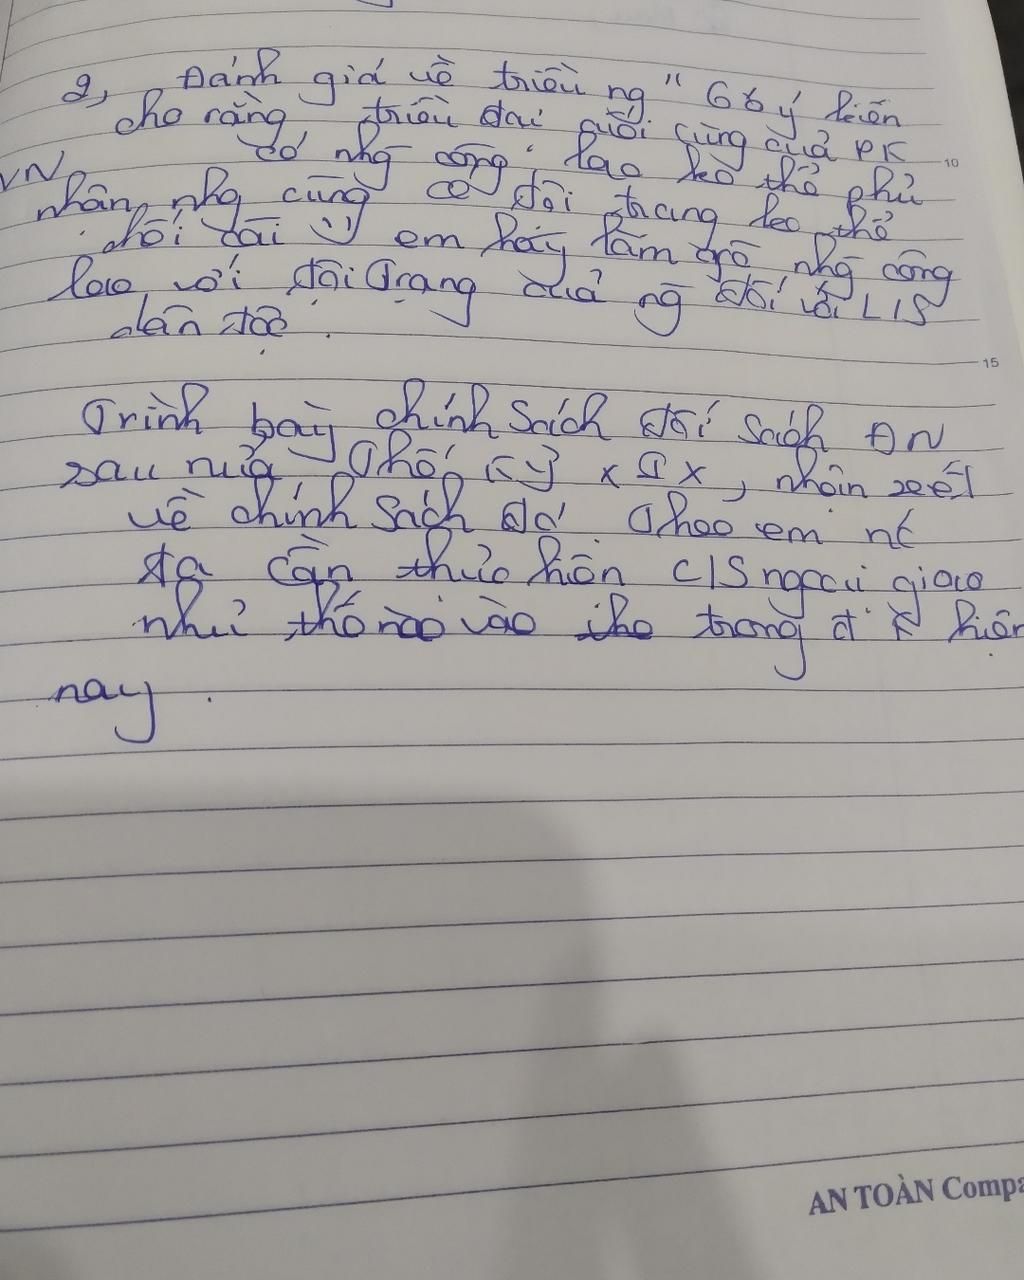 2, Đánh giá về triều ng "Có ý kiến
cho rằng triều đại cuối cùng của PK
10
VN có nhg công lao ko thể phủ
nhận, nhg cũng có tội trạng ko thể
chối cãi " em hãy làm rõ nhg công
lao với tội trạng của ng đối với L/S
dân tộc.
15
Trình bày chính sách đối sách ĐN
sau nửa Thế kỷ XIX, nhận xét
về chính sách đó. Theo em nc
ta cần thực hiện C/S ngoại giao
như thế nào vào cho trong đ k hiện
nay.
AN TOÀN Compa